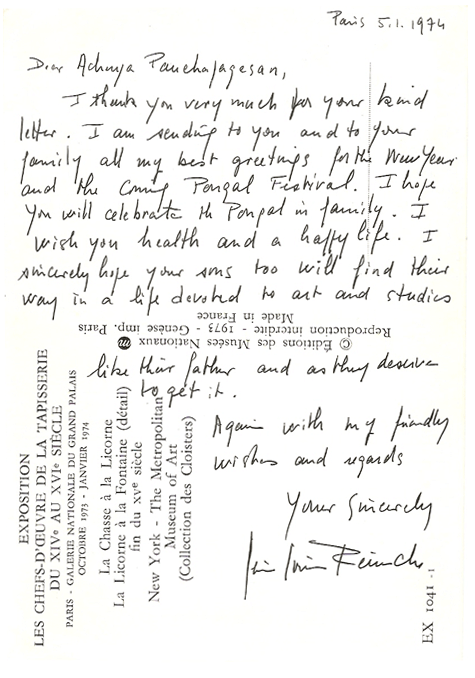 Paris 5.1.1974
Dear Acharya Panchapagesan,
I thank you very much for your kind
letter. I am sending to you and to your
family all my best greetings for the New Year
and the Coming Pongal Festival. I hope
you will celebrate th Pongal in family. I
wish you health and a happy life. I
sincerely hope your sons too will find their
way in a life devoted to art and studies
like their father and as they deserve
to get it.
Again with my friendly
wishes and regards
Your Sincerely
© Éditions des Musées Nationaux
Reproduction interdite - 1973 - Genèse imp. Paris
Made in France
EXPOSITION
LES CHEFS-D'ŒUVRE DE LA TAPISSERIE
DU XIVe AU XVIe SIÈCLE
PARIS - GALERIE NATIONALE DU GRAND PALAIS
OCTOBRE 1973 - JANVIER 1974
La Chasse à la Licorne
La Licorne à la Fontaine (détail)
fin du XVe siècle
New York - The Metropolitan
Museum of Art
(Collection des Cloisters)
EX 1041 - 1